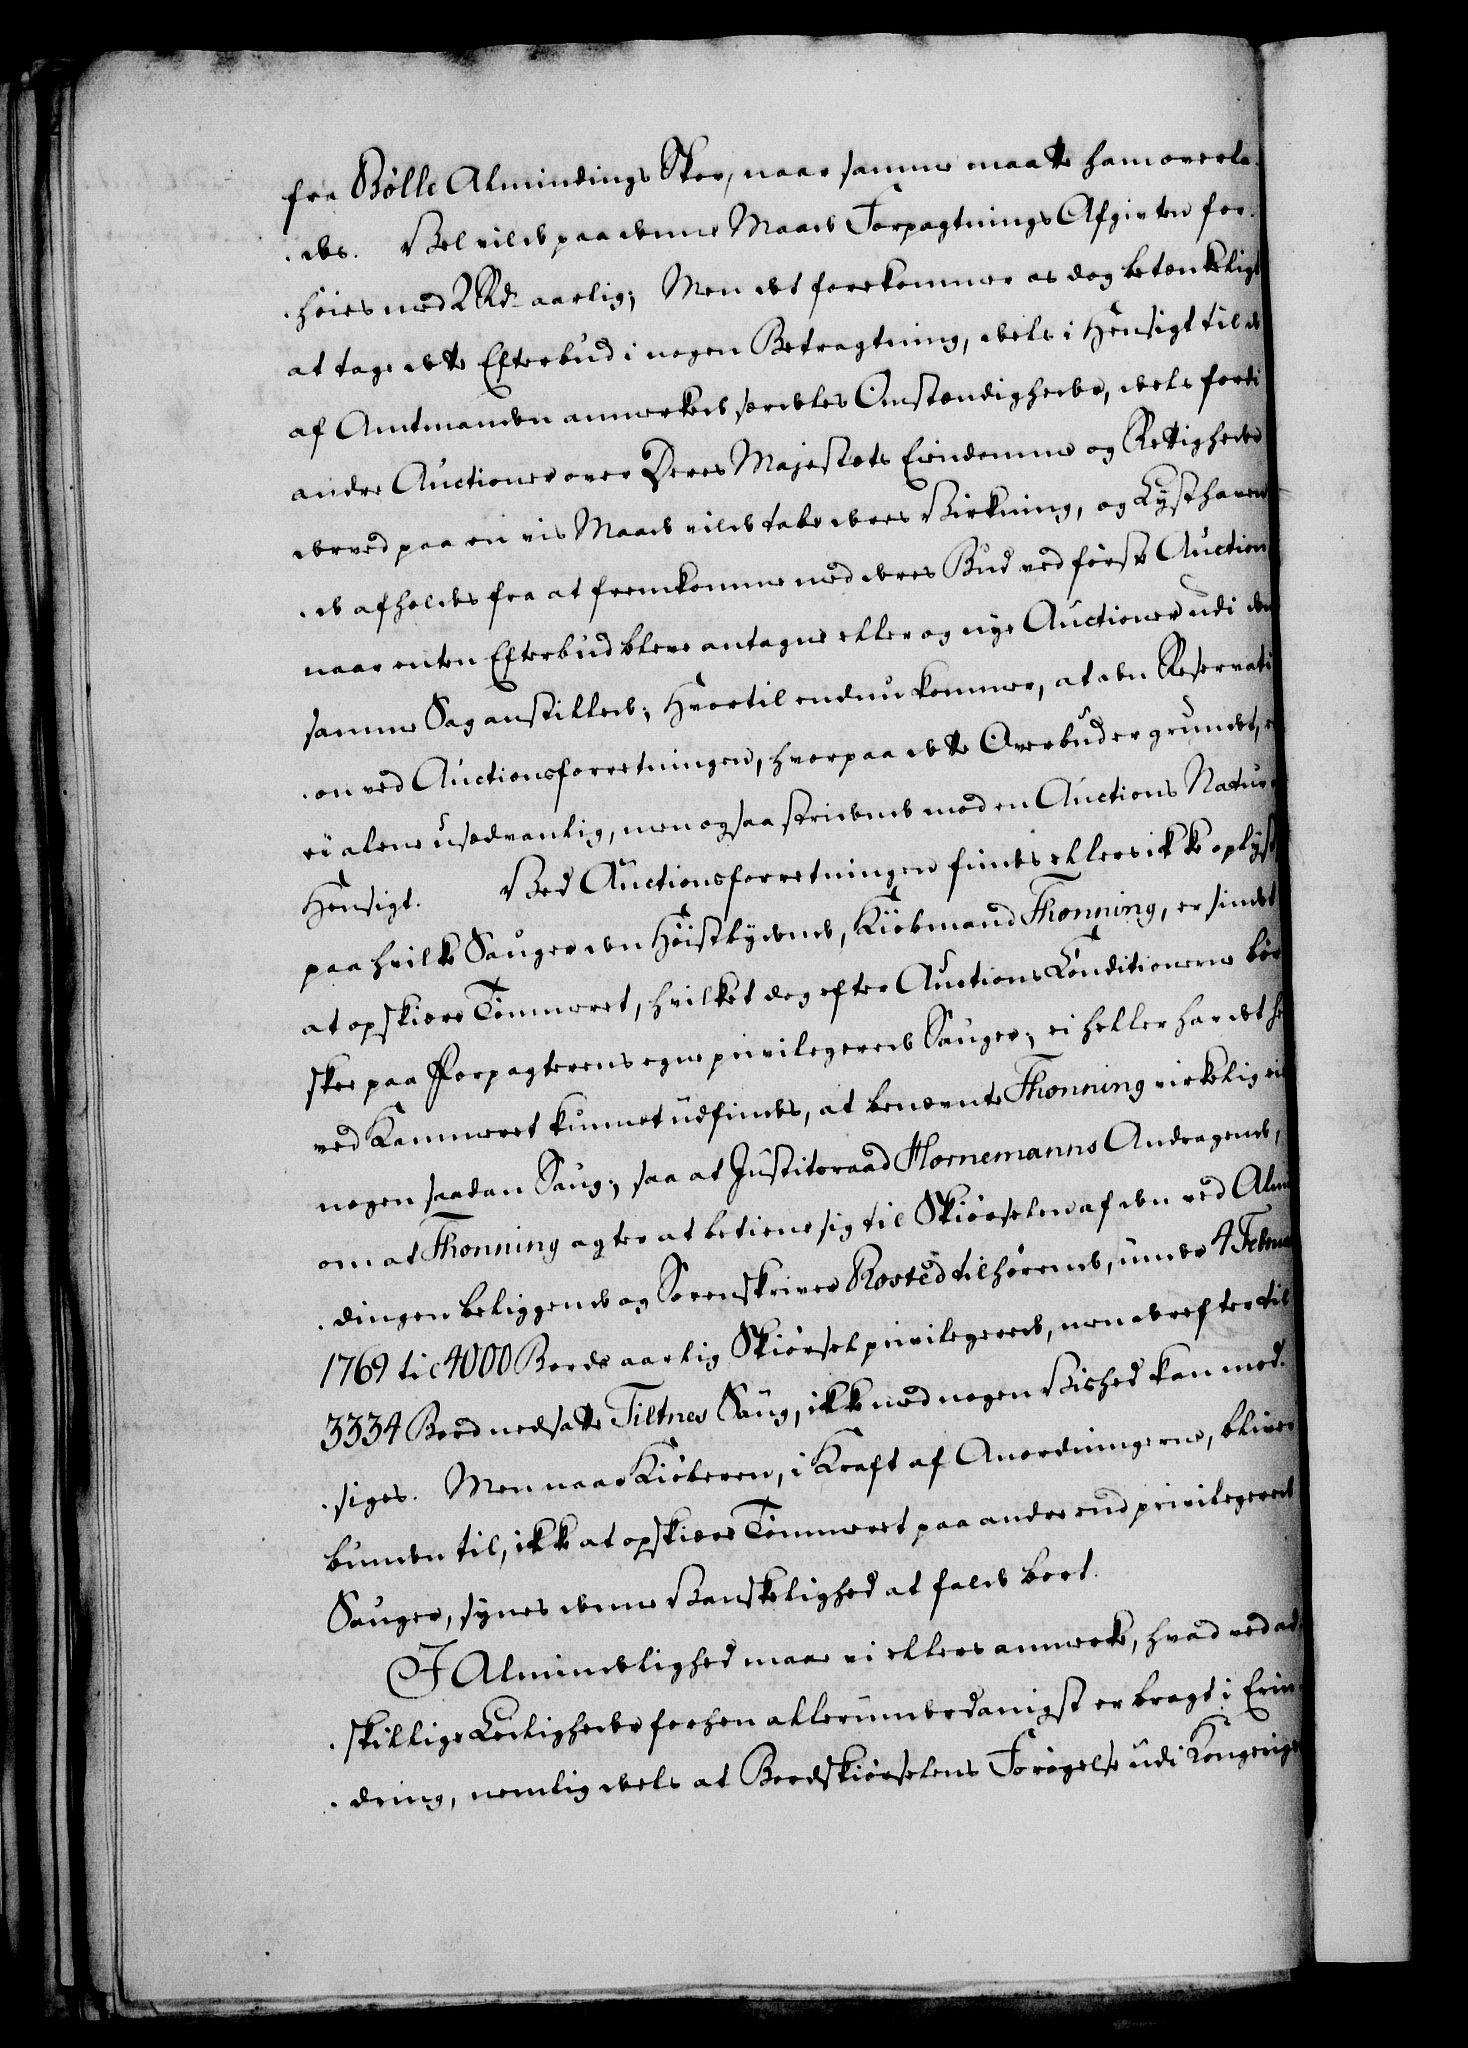 fra Bölle Almindings Skov, naar samme maatte ham overla-
-des. Vel vilde paa denne Maade Forpagtnings Afgivten for-
-höies med 2 Rd. aarlig; Men det forekommer os dog betænkeligt
at tage dette Efterbud i nogen Betragtning, dels i Hensigt til de
af Amtmanden anmerkede særdeles Omstændigheder, dels fordi
andre Auctioner over Deres Majestæts Eiendomme og Rettigheder
derved paa en vis Maade vilde tabe deres Virkning, og Lysthaven-
-de afholdes fra at fremkomme med deres Bud ved første Auction
naar enten Efterbud bleve antagne eller og nye Auctioner udi den
samme Sag anstillede; Hvortil endnu kommer, at den Reservati-
-on ved Auctionsforretningen, hvorpaa dette Overbud er grundet, er
ei alene usædvanlig, men ogsaa stridende mod en Auctions Natur og
Hensigt. Ved Auctionsforretningen findes ellers ikke oplyst,
paa hvilke Sauger den Höistbydende, Kiöbmand Thonning, er sindet
at opskiære Tömmeret, hvilket dog efter Auctions Conditionerne bör
skee paa Forpagterens egne privilegerede Sauger; ei heller har det her
ved Kammeret kunnet udfindes, at benævnte Thonning virkelig eier
nogen saadan Saug; saa at Justitsraad Hornemanns Andragende,
om at Thonning agter at betiene sig til Skiörselen af den ved Almin-
-dingen beliggende og Sorenskriver Rosted tilhörende, under 4 Februar
1769 til 4000 Bords aarlig Skiörsel privilegerede, men derefter til
3334 Bord nedsatte Tiltnes Saug, ikke med nogen Vished kan mod-
-siges. Men naar Kiöberen, i Kraft af Anordningerne, bliver
bunden til, ikke at opskiære Tömmeret paa andre end privilegerede
Sauger, synes denne Vanskelighed at falde bort.
I Almindelighed maae vi ellers anmerke, hvad ved ad-
-skillige Leiligheder forhen allerunderdanigst er bragt i Erin-
-dring, nemlig dels at Bordskiörselens Forögelse udi Kongeriget